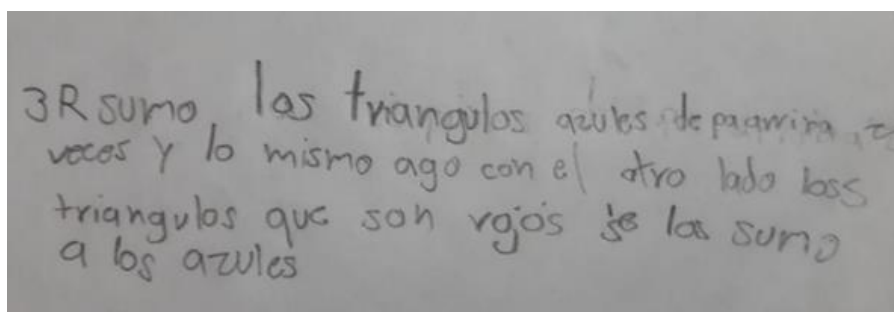 3R sumo los triangulos azules de paarriva 2
veces y lo mismo ago con el otro lado loss
triangulos que son rojos se los sumo
a los azules